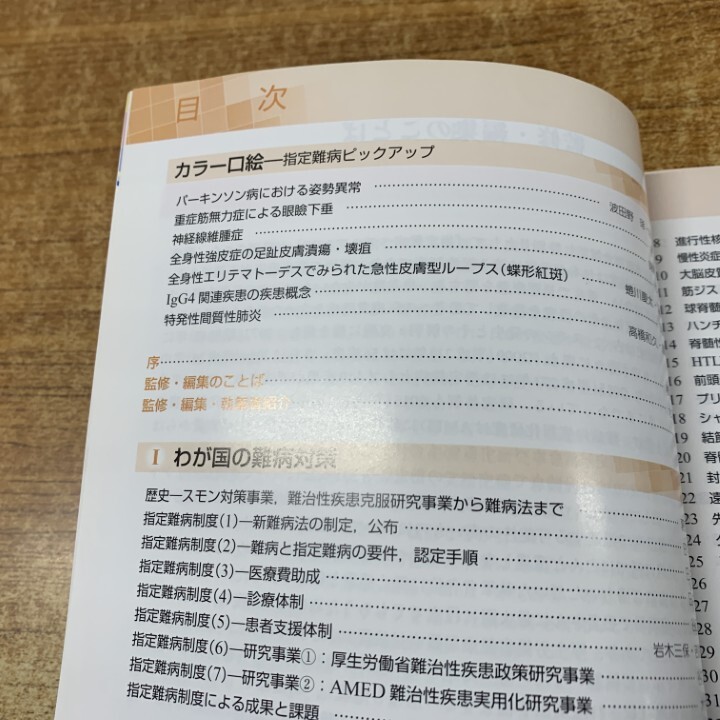 目 次
カラー口絵―指定難病ピックアップ
パーキンソン病における姿勢異常
重症筋無力症による眼瞼下垂
神経線維腫症
全身性強皮症の足趾皮膚潰瘍・壊疽
全身性エリテマトーデスでみられた急性皮膚型ループス(蝶形紅斑)
IgG4関連疾患の疾患概念
特発性間質性肺炎
序
監修・編集のことば
監修・編集・執筆者紹介
I わが国の難病対策
歴史―スモン対策事業,難治性疾患克服研究事業から難病法まで
指定難病制度(1)―新難病法の制定,公布
指定難病制度(2)―難病と指定難病の要件,認定手順
指定難病制度(3)―医療費助成
指定難病制度(4)―診療体制
指定難病制度(5)―患者支援体制
指定難病制度(6)―研究事業①:厚生労働省難治性疾患政策研究事業
指定難病制度(7)―研究事業②:AMED難治性疾患実用化研究事業
指定難病制度による成果と課題
8 進行性核
9 慢性炎症
10 大脳皮質
11 筋ジス
12 球脊髄
13 ハンチ
14 脊髄性
15 HTL
16 前頭
17 プリ
18 シャ
19 結節
20 脊
21 封
22 遠
23 先
24
25
28
29
30
31